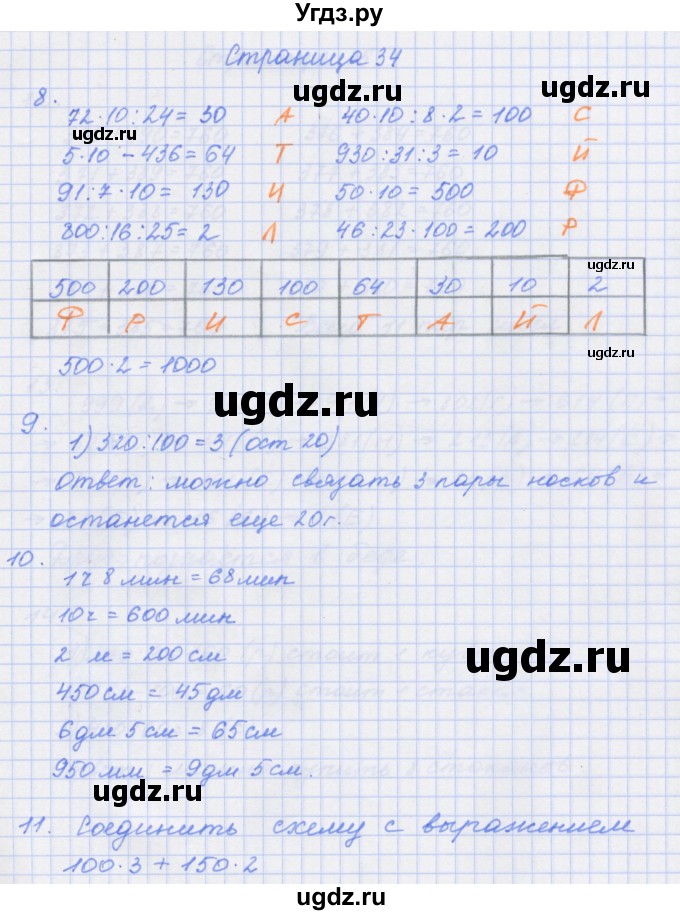 Угдз.ру
Страница 34
8.
72·10:24=30 А 40·10:8·2=100 С
5·10-436=64 Т 930:31:3=10 Й
91:7·10=130 И 50·10=500 Ф
800:16:25=2 Л 46:23·100=200 Р
500 200 130 100 64 30 10 2
Ф Р И С Т А Й Л
500·2=1000
9.
1) 320:100=3 (ост 20)
Ответ: можно связать 3 пары носков и
останется еще 20г.
10.
1ч 8 мин = 68 мин
10ч = 600 мин
2 м = 200 см
450 см = 45 дм
6 дм 5 см = 65 см
950 мм = 9 дм 5 см.
11. Соединить схему с выражением
100·3+150·2
ugdz.ru
ugdz.ru
ugdz.ru
ugdz.ru
ugdz.ru
ugdz.ru
ugdz.ru
ugdz.ru
ugdz.ru
ugdz.ru